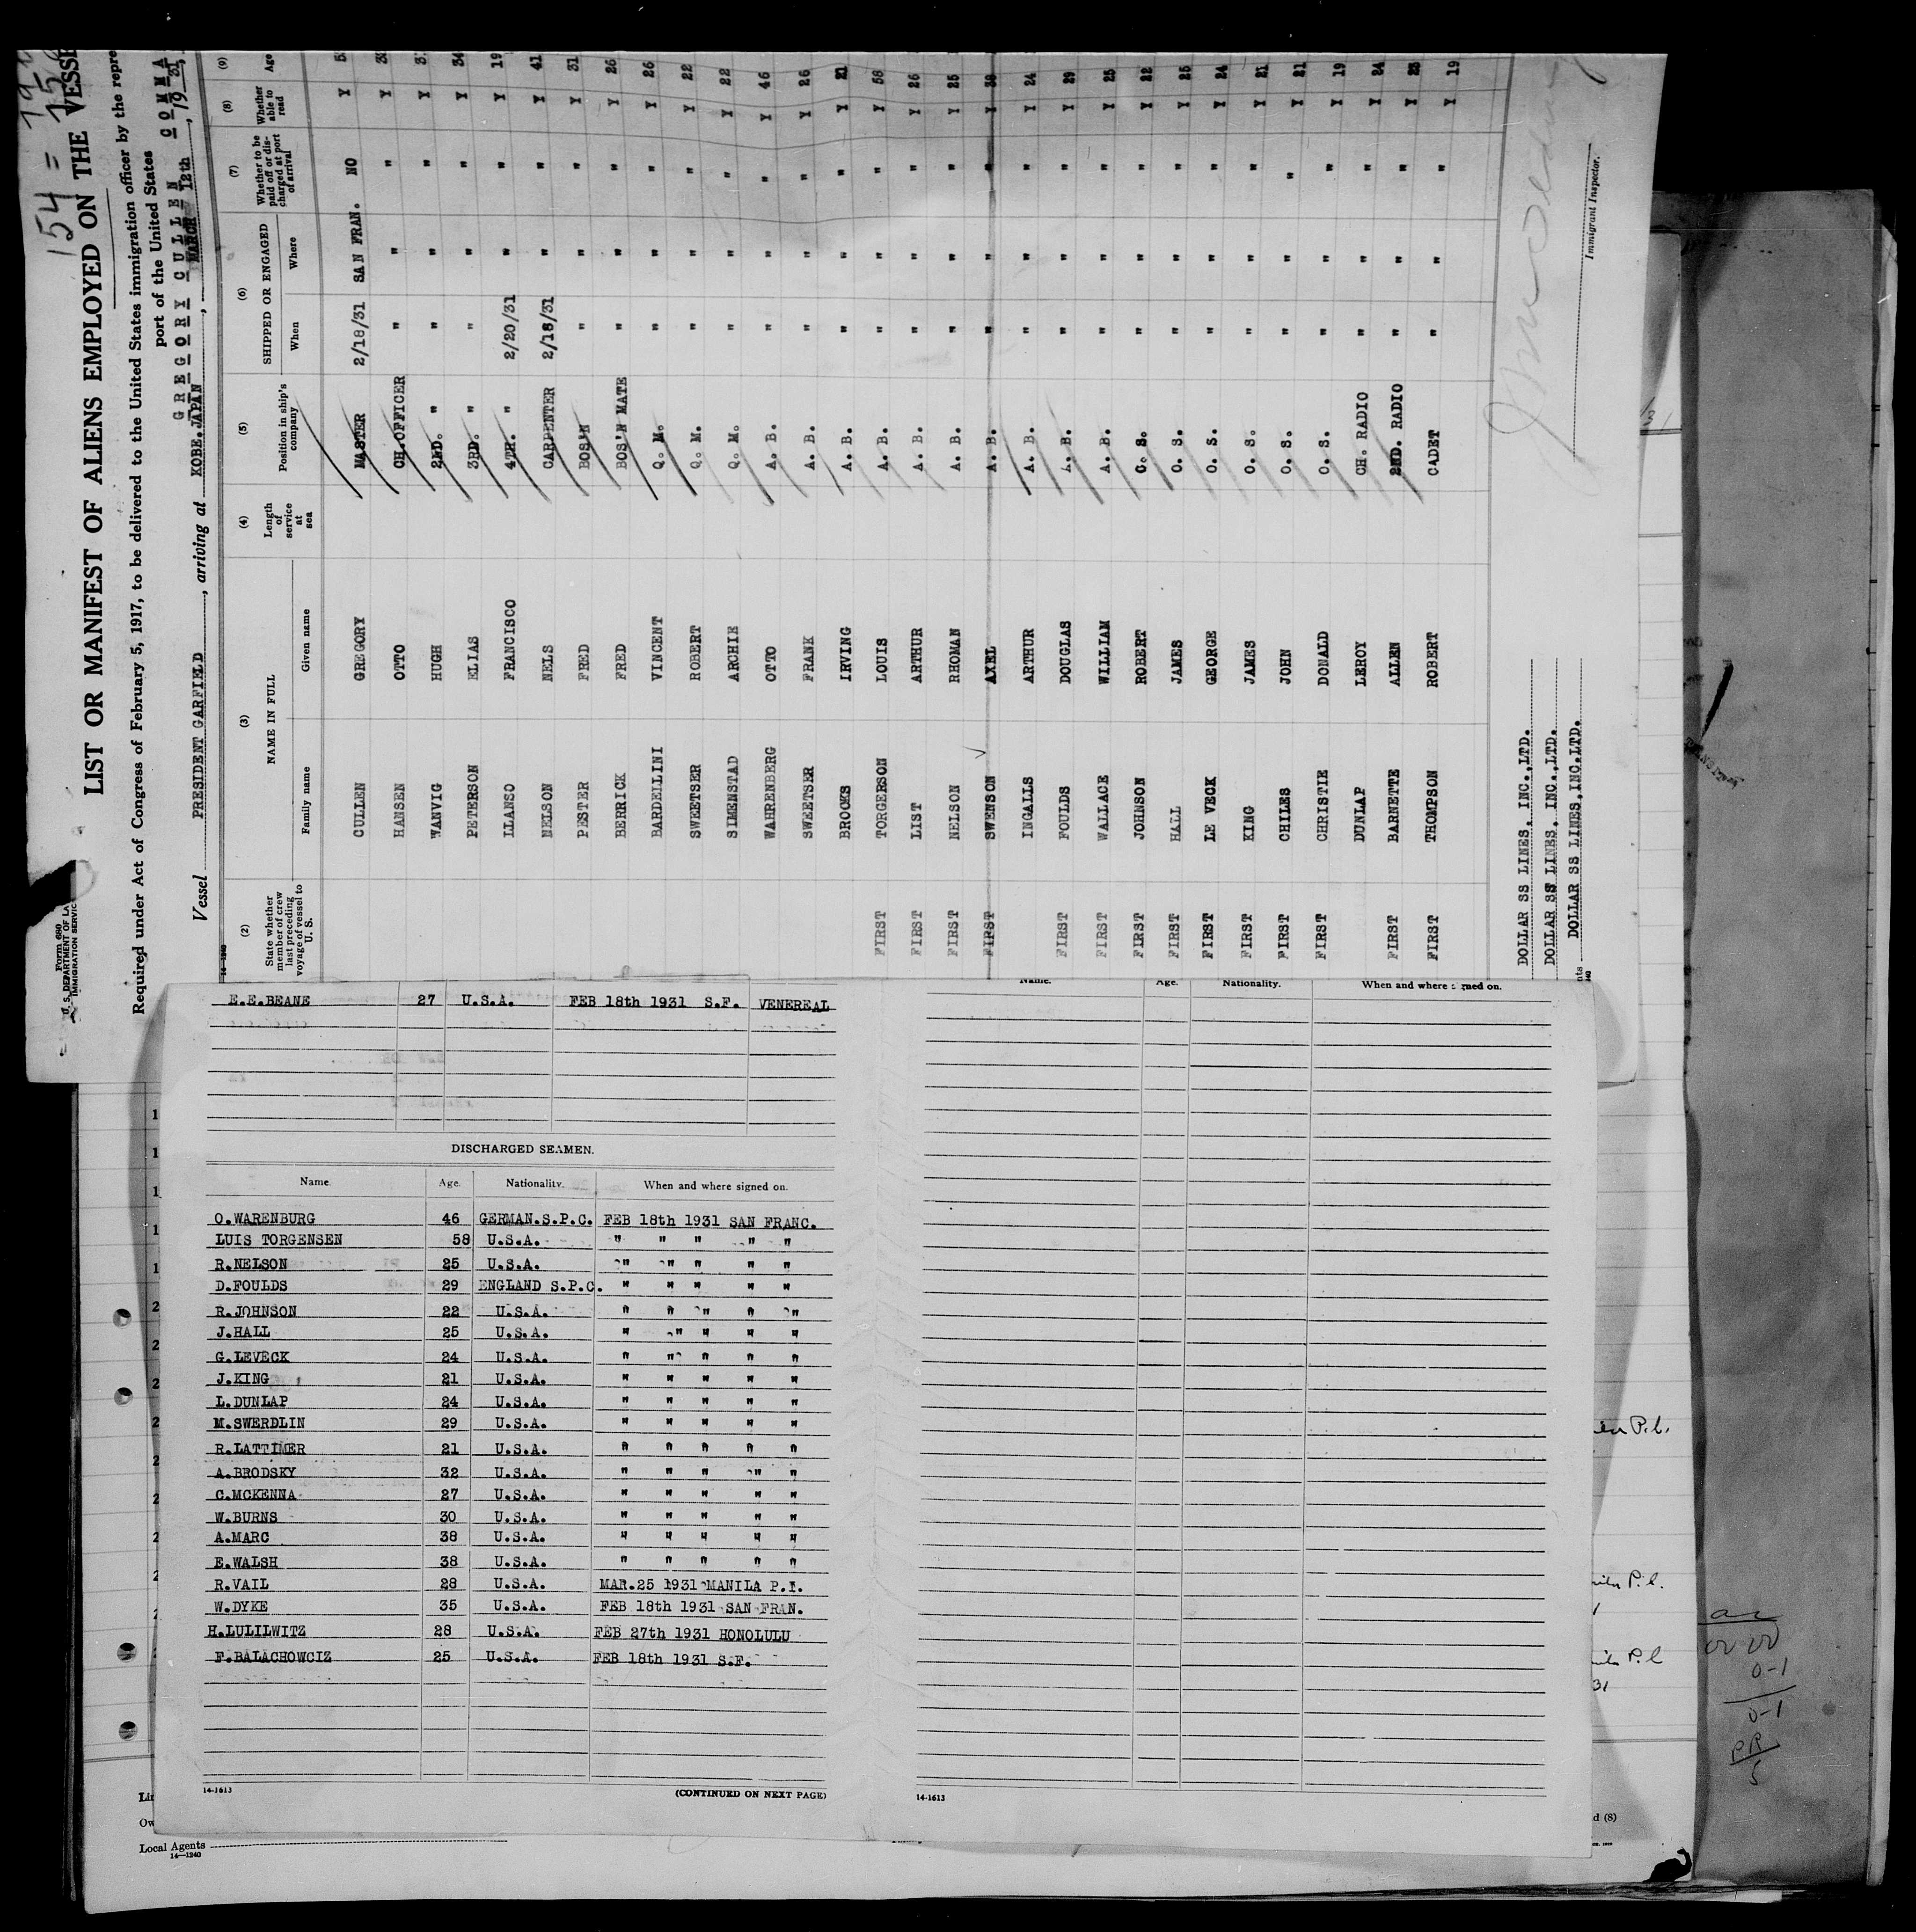 154 =
Form 680
U. S. DEPARTMENT OF LA
IMMIGRATION SERVIC
LIST OR MANIFEST OF ALIENS EMPLOYED ON THE VESSE
Required under Act of Congress of February 5, 1917, to be delivered to the United States immigration officer by the repre
port of the United States
GREGORY CULLEN COMMA
Vessel PRESIDENT GARFIELD, arriving at KOBE.JAPAN, MARCH 12th, 1931
14—1240
(2) (3) (4) (5) (6) (7) (8) (9)
State whether member of crew last preceding voyage of vessel to U. S. NAME IN FULL Length of service at sea Position in ship's company SHIPPED OR ENGAGED Whether to be paid off or discharged at port of arrival Whether able to read Age
Family name Given name When Where
CULLEN GREGORY MASTER 2/18/31 SAN FRAN. NO Y
HANSEN OTTO CH.OFFICER " " " Y
WANVIG HUGH 2ND. " " " " Y
PETERSON ELIAS 3RD. " " " " Y 34
LLANSO FRANCISCO 4TH. " 2/20/31 " " Y 19
NELSON NELS CARPENTER 2/18/31 " " Y 41
PESTER FRED BOS'N " " " Y 31
BERRICK FRED BOS'N MATE " " " Y 26
BARDELLINI VINCENT Q. M. " " " Y 26
SWEETSER ROBERT Q. M. " " " Y 22
SIMENSTAD ARCHIE Q. M. " " " Y 22
WAHRENBERG OTTO A. B. " " " Y 46
SWEETSER FRANK A. B. " " " Y 26
BROOKS IRVING A. B. " " " Y 21
FIRST TORGERSON LOUIS A. B. " " " Y 58
FIRST LIST ARTHUR A. B. " " " Y 26
FIRST NELSON RHOMAN A. B. " " " Y 25
FIRST SWENSON AXEL A. B. " " " Y 38
INGALLS ARTHUR A. B. " " " Y 24
FIRST FOULDS DOUGLAS A. B. " " " Y 29
FIRST WALLACE WILLIAM A. B. " " " Y 25
FIRST JOHNSON ROBERT O. S. " " " Y 22
FIRST HALL JAMES O. S. " " " Y 25
FIRST LE VECK GEORGE O. S. " " " Y 24
FIRST KING JAMES O. S. " " " Y 21
FIRST CHILES JOHN O. S. " " " Y 21
FIRST CHRISTIE DONALD O. S. " " " Y 19
DUNLAP LEROY CH. RADIO " " " Y 24
FIRST BARNETTE ALLEN 2ND. RADIO " " " Y 23
FIRST THOMPSON ROBERT CADET " " " Y 19
DOLLAR SS LINES. INC.,LTD.
DOLLAR SS LINES. INC.,LTD.
DOLLAR SS LINES,INC.LTD.
Immigrant Inspector.
E.E.BEANE 27 U.S.A. FEB 18th 1931 S.F. VENEREAL
DISCHARGED SEAMEN.
Name. Age. Nationality. When and where signed on.
O.WARENBURG 46 GERMAN.S.P.C. FEB 18th 1931 SAN FRANC.
LUIS TORGENSEN 58 U.S.A. " " " " "
R.NELSON 25 U.S.A. " " " " "
D.FOULDS 29 ENGLAND S.P.C. " " " " "
R.JOHNSON 22 U.S.A. " " " " "
J.HALL 25 U.S.A. " " " " "
G.LEVECK 24 U.S.A. " " " " "
J.KING 21 U.S.A. " " " " "
L.DUNLAP 24 U.S.A. " " " " "
M.SWERDLIN 29 U.S.A. " " " " "
R.LATTIMER 21 U.S.A. " " " " "
A.BRODSKY 32 U.S.A. " " " " "
C.MCKENNA 27 U.S.A. " " " " "
W.BURNS 30 U.S.A. " " " " "
A.MARC 38 U.S.A. " " " " "
E.WALSH 38 U.S.A. " " " " "
R.VAIL 28 U.S.A. MAR.25 1931 MANILA P.I.
W.DYKE 35 U.S.A. FEB 18th 1931 SAN FRAN.
H.LULILWITZ 28 U.S.A. FEB 27th 1931 HONOLULU
F.BALACHOWCIZ 25 U.S.A. FEB 18th 1931 S.F.
14-1613
(CONTINUED ON NEXT PAGE)
Name. Age. Nationality. When and where signed on.
14-1613
P.I.
P.I.
P.I
31
0-1
0-1
PR
5
Local Agents
14—1240
d (8)